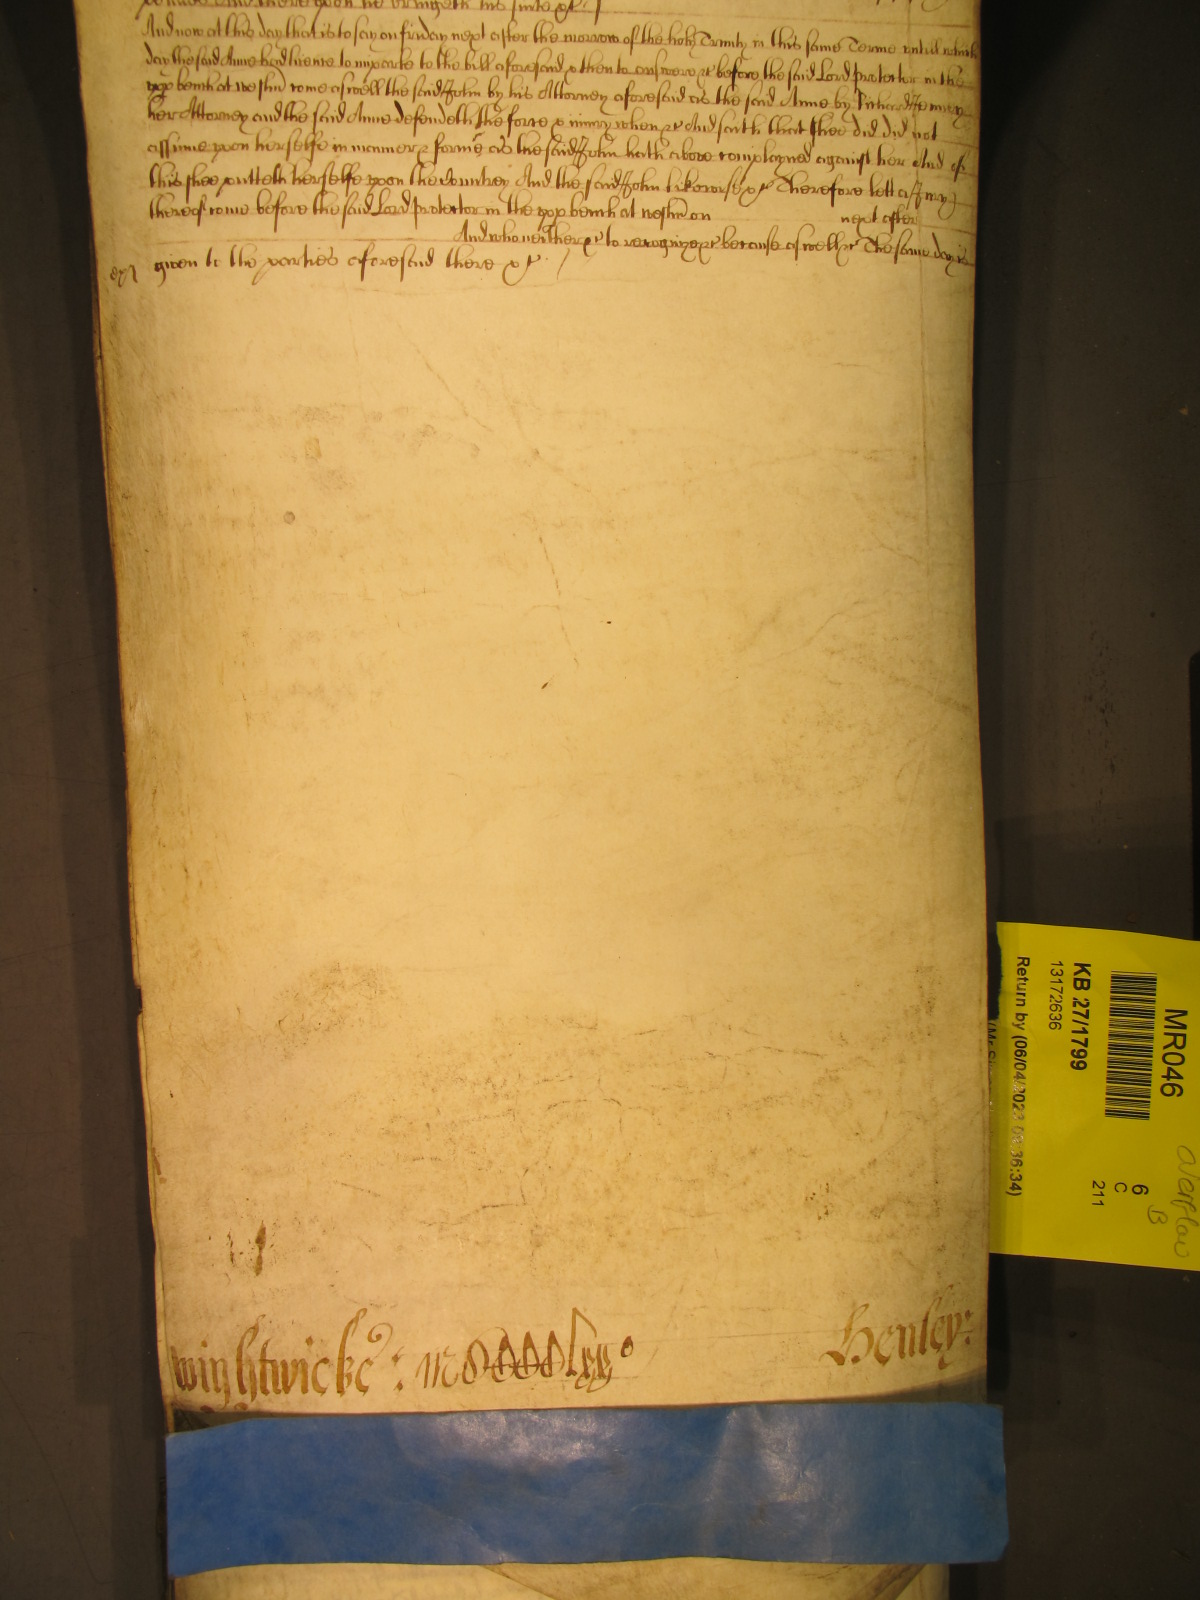 and thereupon he bringeth his suite &c
And now at this day that is to say on friday next after the morrow of the holy Trinity in this same Terme untill which
day the said Anne had licence to imparle to the bill aforesaid & then to answere &c before the said Lord Protector in the
upp bench at Westm come aswell the said John by his Attorney aforesaid as the said Anne by Richard
her Attorney and the said Anne defendeth the force & iniury when &c And saith that shee did did not
assume upon herselfe in manner & forme as the said John hath above complayned against her And of
this shee putteth herselfe upon the Countrey And the said John likewise &c Therefore lett a Jury
thereof come before the said Lord Protector in the upp bench at Westm on next after
And who neither &c to recognize &c because aswell &c The same day is
given to the parties aforesaid there &c
Wightwicke: Henley:
MR046
KB 27/1799
13172636
Return by (06/04/2023 08:36:34)
6
C
211
B
overflow